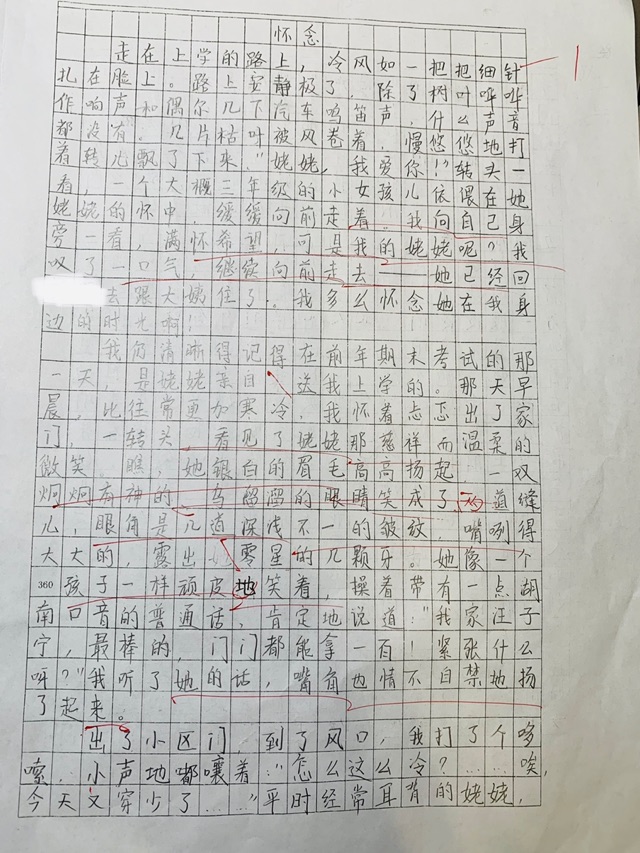 怀念
走在上学的路上，冷风如一把把细针
扎在脸上。路上安静极了，除了树叶哗哗
作响声和偶尔几下汽车鸣笛声，什么声音
都没有。几片枯叶被风卷着，慢悠悠地打
着转儿飘了下来。“姥姥，我爱你！”转头一
看，一个大概三年级的小女孩儿依偎在她
姥姥的怀中，缓缓向前走着。我向自己身
旁一看，满怀希望，可是我的姥姥呢？我
叹了一口气，继续向前走去——她已经回
去跟大姨住了。我多么怀念她在我身
边的时光啊！
我仍清晰得记得在前年期末考试的那
一天，是姥姥亲自送我上学的。那天早
晨，比往常更加寒冷，我怀着忐忑出了家
门，一转头，看见了姥姥那慈祥而温柔的
微笑。瞧，她银白的眉毛高高扬起，一双
炯炯有神的、乌溜溜的眼睛笑成了两道缝
儿，眼角是几道深浅不一的皱纹，嘴咧得
大大的，露出零星的几颗牙。她像一个
360 孩子一样顽皮地笑着，操着带有一点湖
南口音的普通话，肯定地说道：“我家汪子
宁，最棒的，门门都能拿一百！紧张什么
呀？”我听了她的话，嘴角也情不自禁地扬
了起来。
出了小区门，到了风口，我打了个哆
嗦，小声地嘟囔着：“怎么这么冷？……唉，
今天又穿少了……”平时经常耳背的姥姥，
1